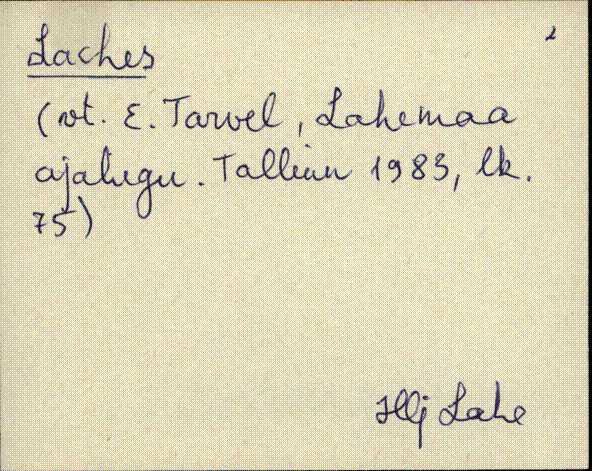 2
Laches
(vt. E. Tarvel, Lahemaa
ajalugu. Tallinn 1983, lk.
75)
Hlj Lahe